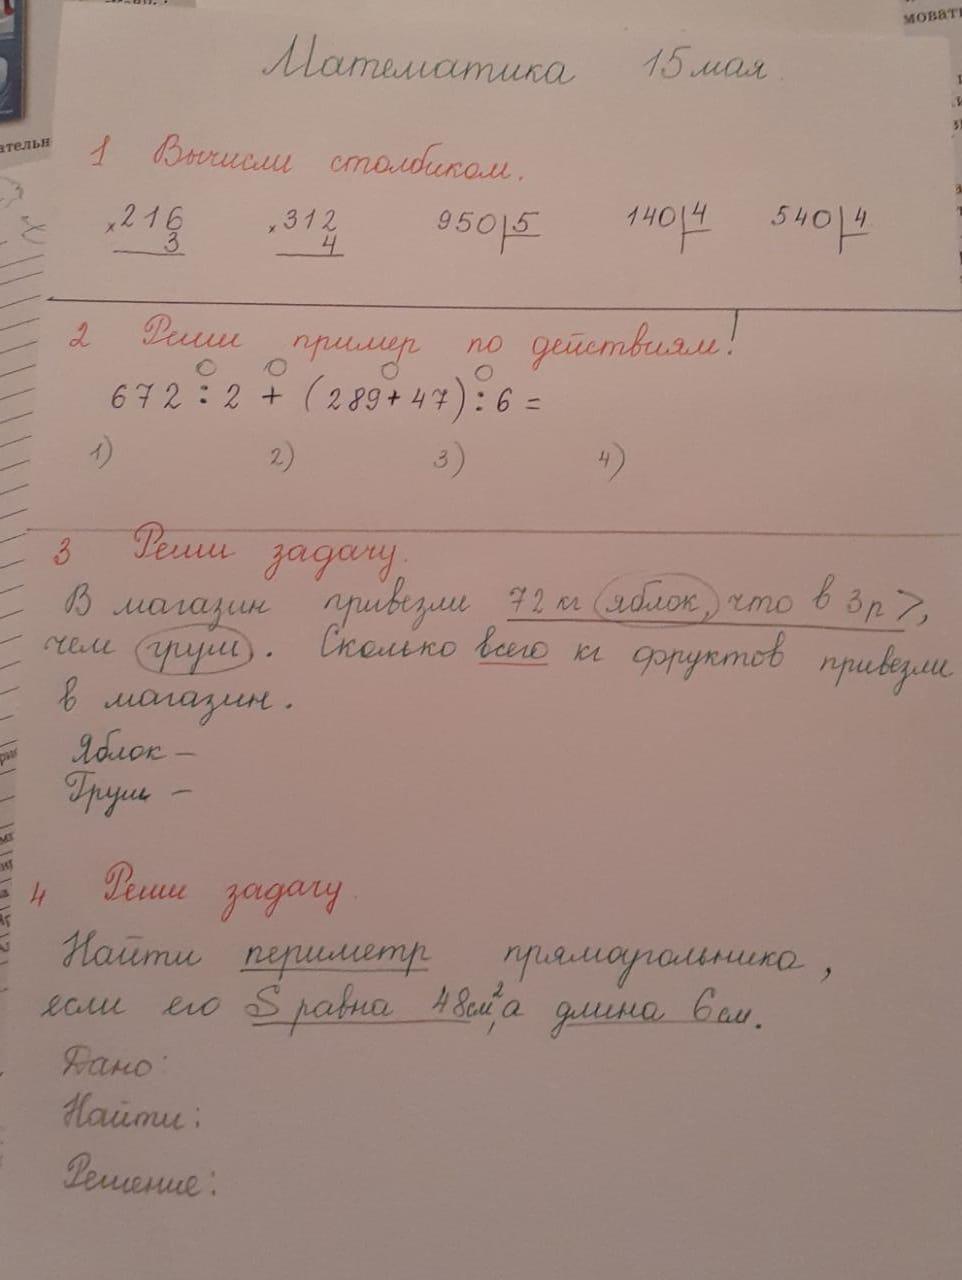 мовать
ательн
Математика 15 мая.
1 Вычисли столбиком.
×216 ×312 950|5 140|4 540|4
3 4
2 Реши пример по действиям!
672 : 2 + (289 + 47) : 6 =
1) 2) 3) 4)
3 Реши задачу.
В магазин привезли 72 кг яблок, что в 3 р >,
чем груш. Сколько всего кг фруктов привезли
в магазин.
Яблок –
Груш –
4 Реши задачу.
Найти периметр прямоугольника,
если его S равна 48см², а длина 6 см.
Дано:
Найти:
Решение: